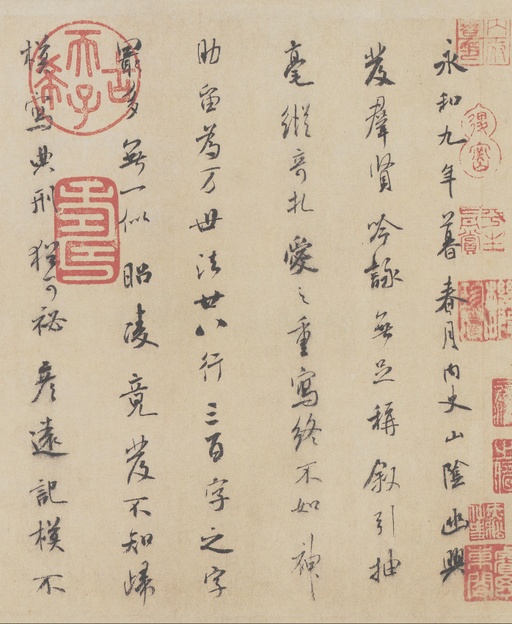 永和九年暮春月内史山陰幽興
發羣賢吟詠無足稱叙引抽
毫縱奇札愛之重寫終不如神
助留為万世法廿八行三百字之字
最多無一似昭陵竟發不知歸
模寫典刑猶可祕彦遠記模不
古希天子